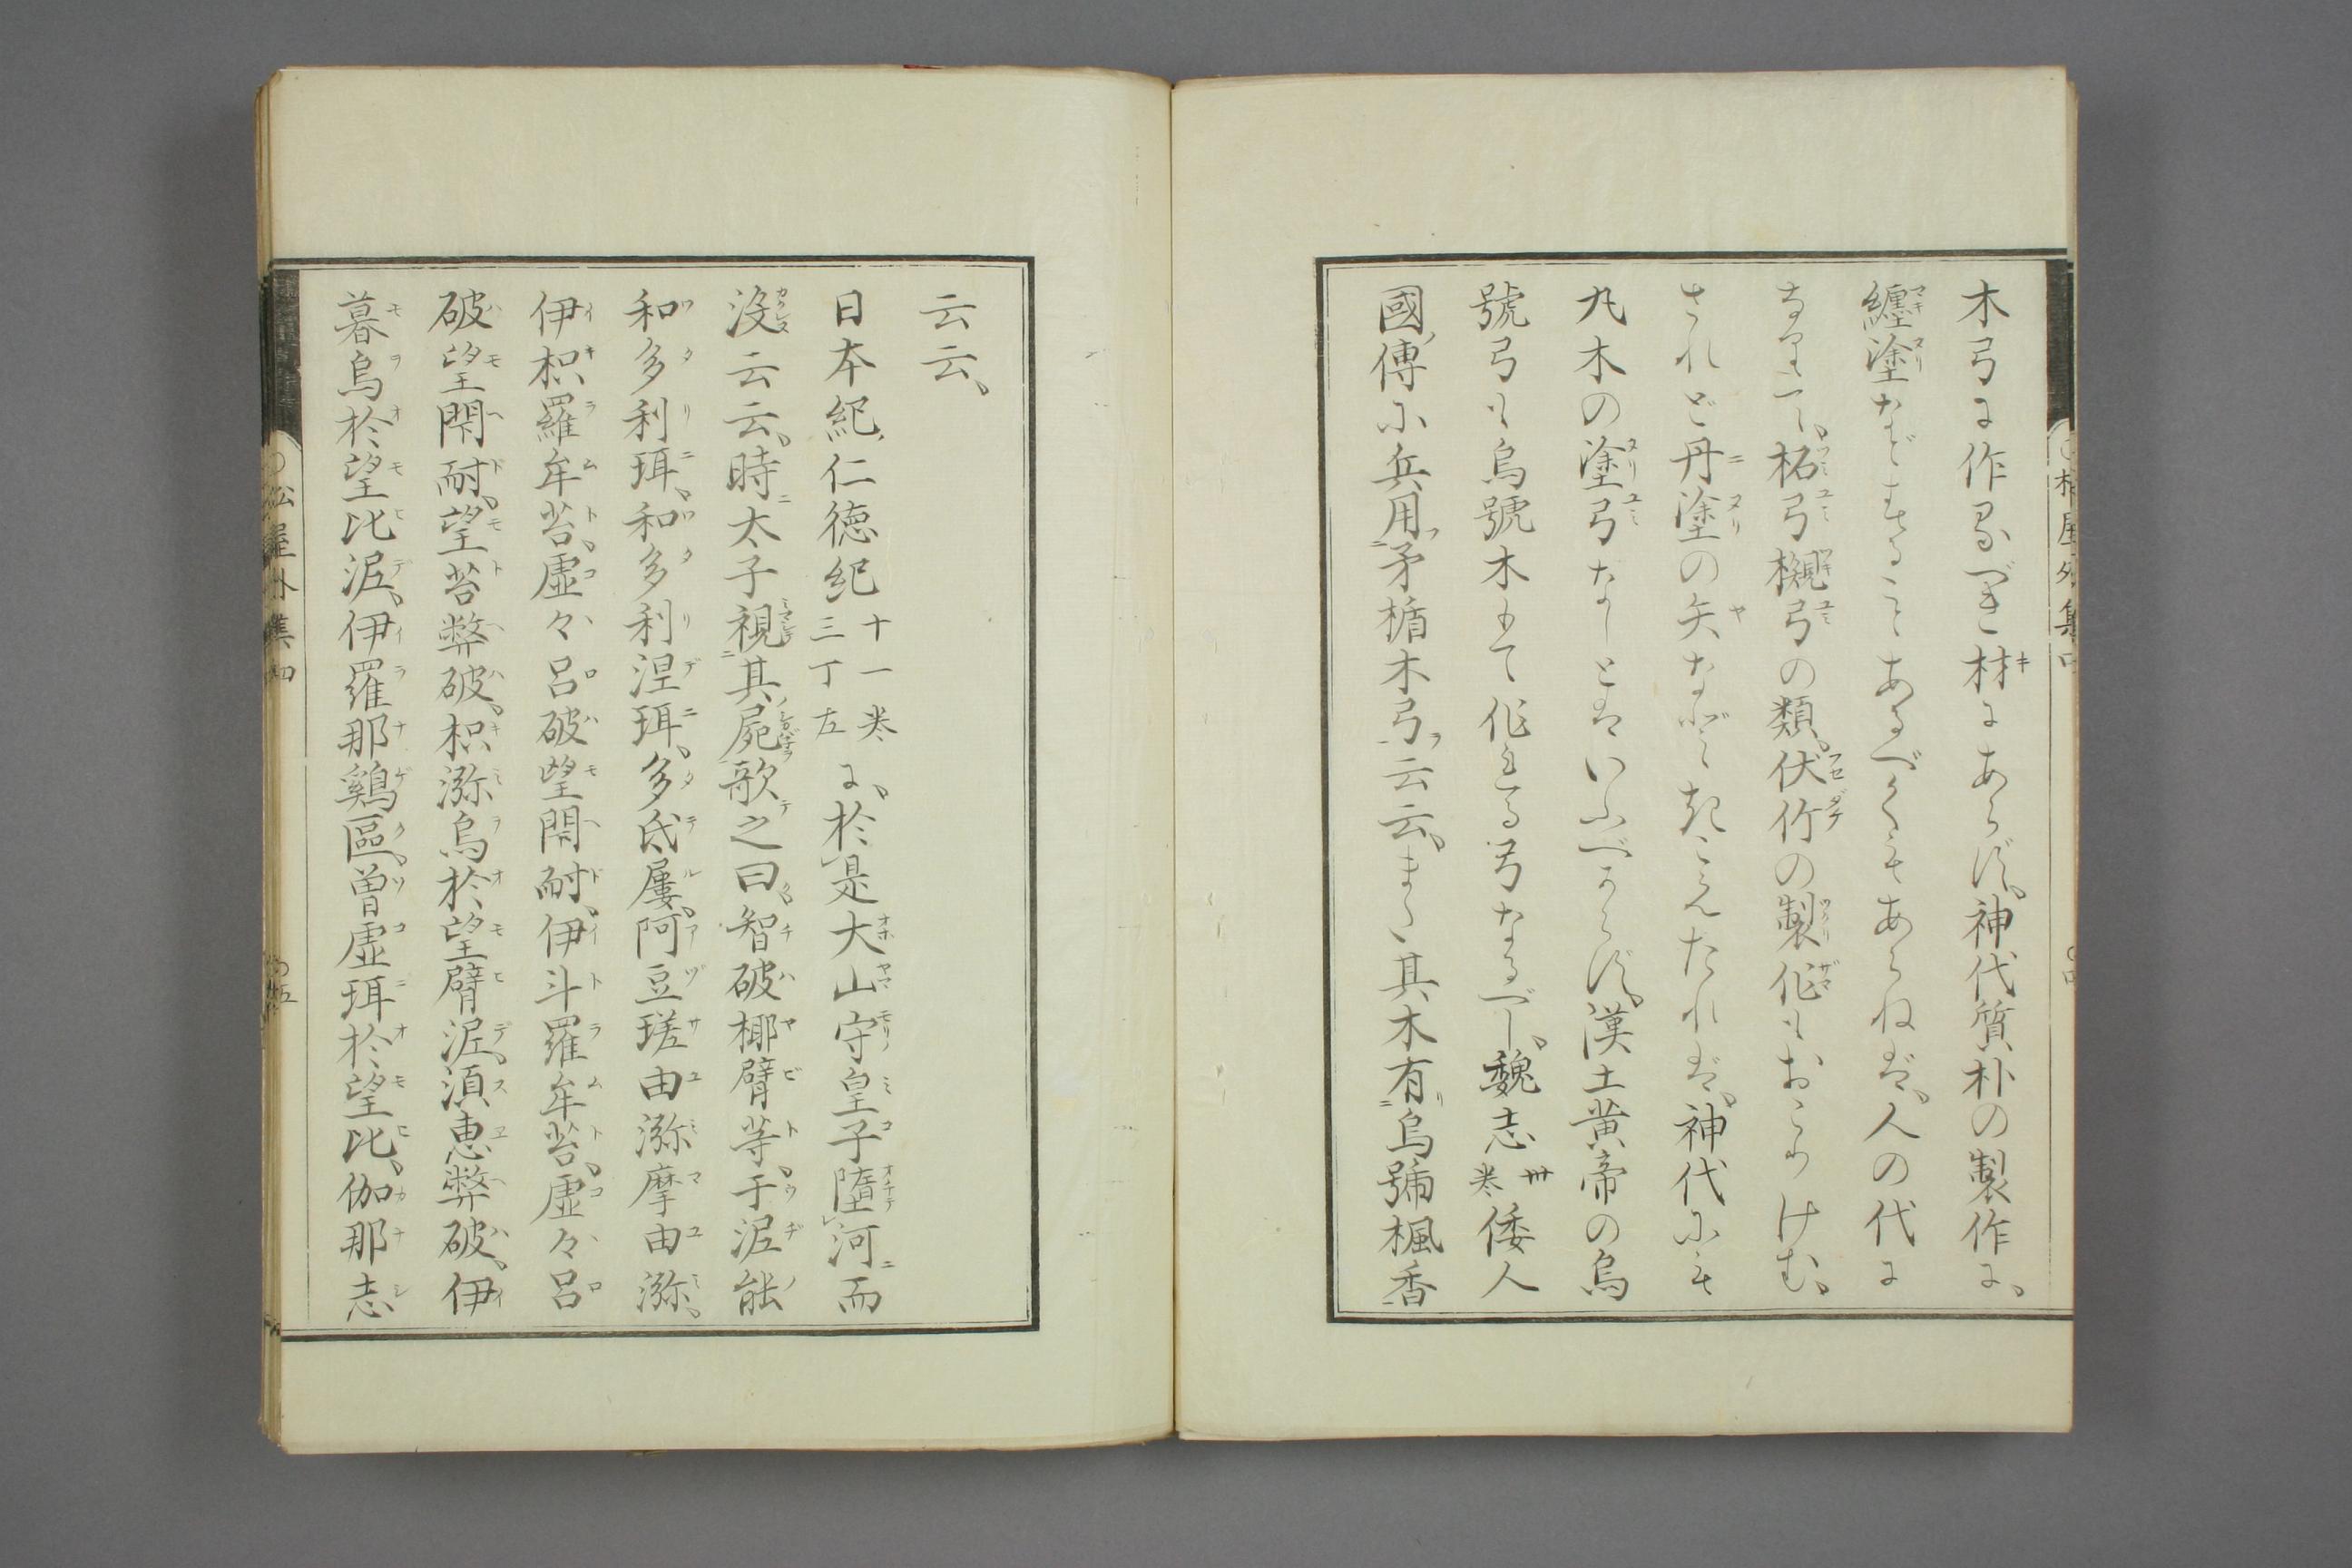 木弓に作るべき材にあらず、神代質朴の製作に、
纏塗などせることあるべくもあらねば、人の代に
なりて、柘弓檴弓の類、伏竹の製作もおこりけむ、
されど丹塗の矢など、きこえたれば、神代にも
丸木の塗弓なしとはいふべからず、漢土黄帝の烏
號弓も烏號木もて作れる弓なるべし、魏志卅巻倭人
國傳に兵用矛楯木弓云云、また其木有烏號楓香
云云、
日本紀仁徳紀十一巻三丁左に、於是大山守皇子墮河而
沒云云、時太子視其屍歌之曰、智破椰臂等、于泥能
和多利珥、和多利涅珥、多氐屢、阿豆瑳由瀰摩由瀰、
伊枳羅牟苔、虚々呂破望閇耐、伊斗羅牟苔、虚々呂
破望閇耐、望苔弊破、枳瀰烏於望臂泥、湏恵弊破、伊
暮烏於望比泥、伊羅那鷄區、曽虚珥於望比、伽那志
松屋外集四